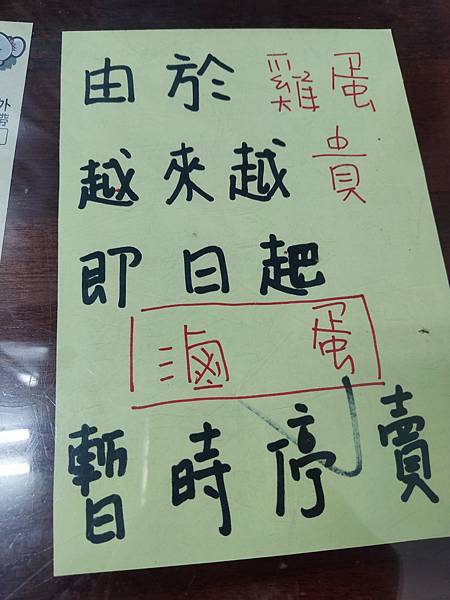 由於雞蛋
越來越貴
即日起
滷蛋
暫時停賣
外
帶